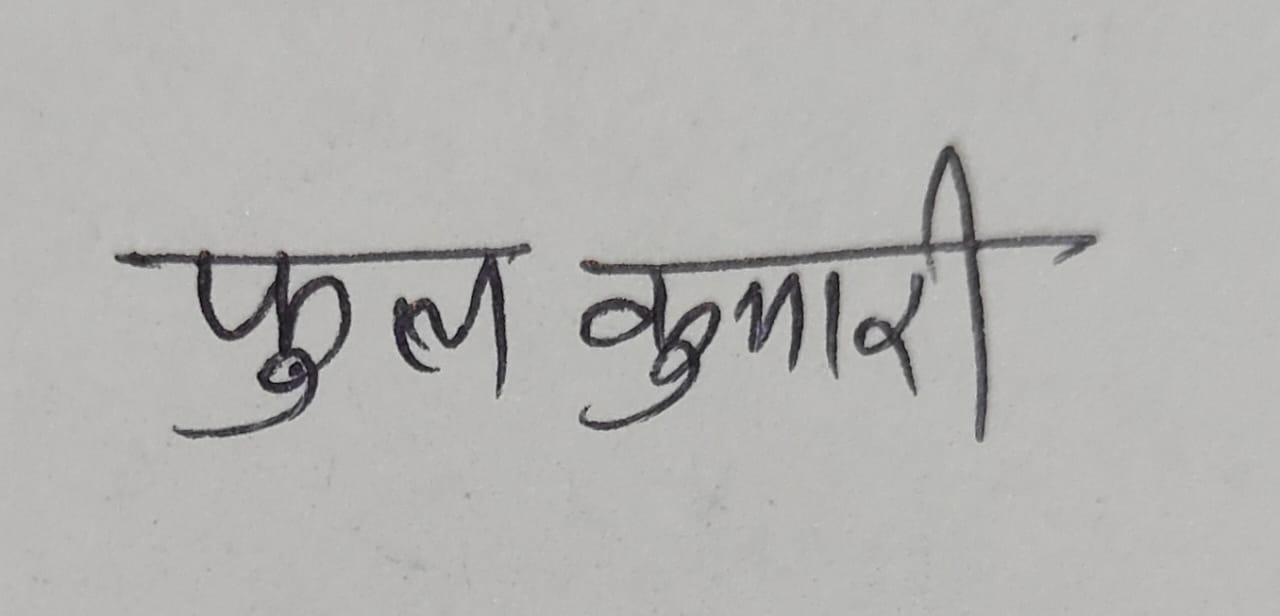 फुल कुमारी